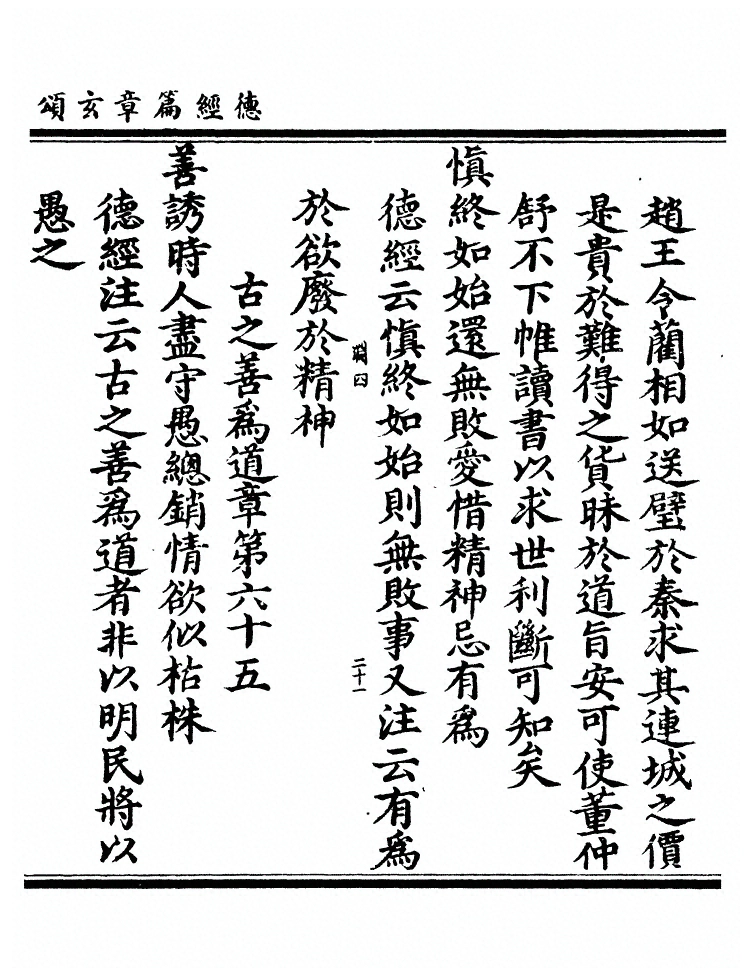 德經篇章玄頌
趙王令藺相如送璧於秦求其連城之價
是貴於難得之貨昧於道旨安可使董仲
舒不下帷讀書以求世利斷可知矣
慎終如始還無敗愛惜精神忌有爲
德經云慎終如始則無敗事又注云有爲
二十一
於欲廢於精神
古之善爲道章第六十五
善誘時人盡守愚總銷情欲似枯株
德經注云古之善爲道者非以明民將以
愚之